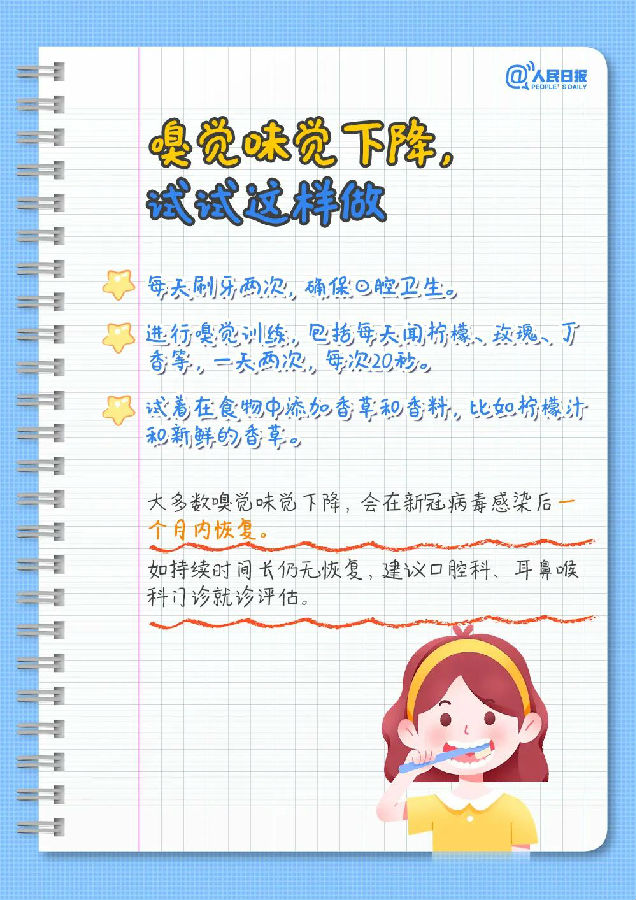 @人民日报
PEOPLE'S DAILY
嗅觉味觉下降，
试试这样做
每天刷牙两次，确保口腔卫生。
进行嗅觉训练，包括每天闻柠檬、玫瑰、丁
香等，一天两次，每次20秒。
试着在食物中添加香草和香料，比如柠檬汁
和新鲜的香草。
大多数嗅觉味觉下降，会在新冠病毒感染后一
个月内恢复。
如持续时间长仍无恢复，建议口腔科、耳鼻喉
科门诊就诊评估。